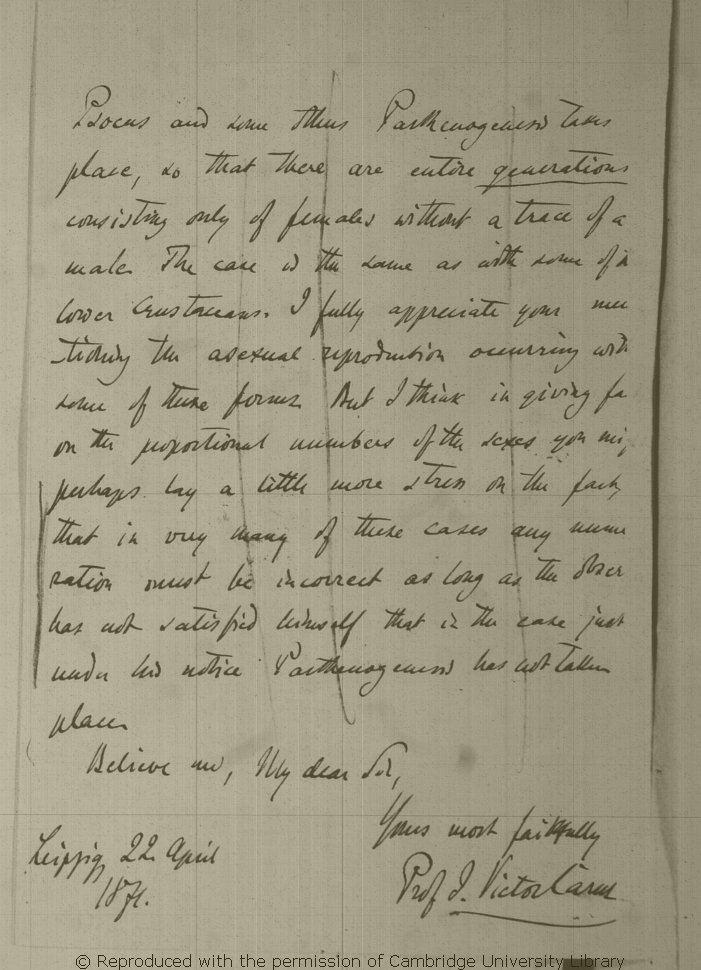 Psocus and some others Parthenogenesis takes
place, so that there are entire generations
consisting only of females without a trace of a
male. The case is the same as with some of
lower Crustaceans. I fully appreciate your men
tioning the asexual reproduction occurring with
some of these forms. But I think in giving fa
on the proportional numbers of the sexes you mig
perhaps lay a little more stress on the fact,
that in very many of these cases any nume
ration must be incorrect as long as the obser
has not satisfied himself that in the case just
under his notice Parthenogenesis has not taken
place.
Believe me, My dear Sir,
Yours most faithfully
Prof J. Victor Carus
Leipzig 22 April
1871.
© Reproduced with the permission of Cambridge University Library